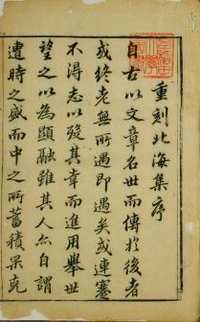 重刻北海集序
自古以文章名世而傳於後者
或終老無所遇即遇矣或連蹇
不得志以發其幸而進用舉世
望之以為顯融雖其人亦自謂
遭時之盛而中之所蓄積果克